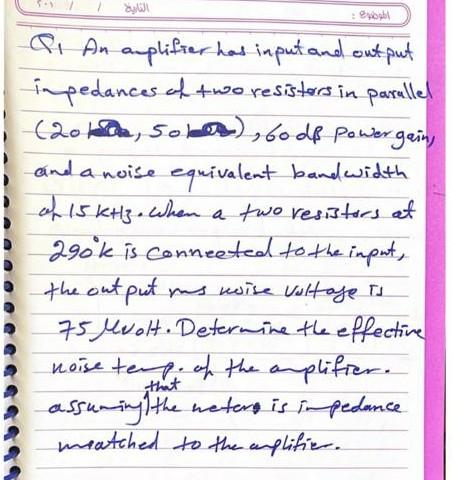 التاريخ / / ٢٠١
الموضوع :
Q1 An amplifier has input and output
impedances of two resistors in parallel
(20 k, 50 k), 60 dB power gain,
and a noise equivalent bandwidth
of 15 KHz. When a two resistors at
290°k is connected to the input,
the output rms noise voltage is
75 μvolt. Determine the effective
noise temp. of the amplifier.
assuming that the meter is impedance
matched to the amplifier.